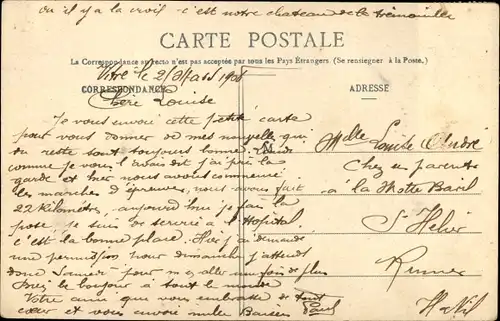 où il y a la croix c'est notre chateau de la trémouille
CARTE POSTALE
La Correspondance au recto n'est pas acceptée par tous les Pays Étrangers. (Se renseigner à la Poste.)
Vitré le 2 Mars 1908
CORRESPONDANCE
ADRESSE
Chère Louise
Je vous envoie cette petite carte
pour vous donner de mes nouvelles qui
du reste sont toujours bonne.
comme je vous l'avais dit j'ai pris la
garde et hier nous avons commencé
les marches d'épreuves, nous avons fait
22 kilomètres, aujourd'hui je fais la
pose, je suis de service à l'Hopital.
c'est la bonne place. Hier j'ai demandé
une permission pour dimanche j'attends
donc pour m'y aller une fois de plus
le bonjour à tout le monde
Votre ami que vous embrasse de tout
cœur et vous envoie mille Baisers
Paul
Melle Louise André
Chez ses parents
à la Motte Baril
St Helier
Rennes